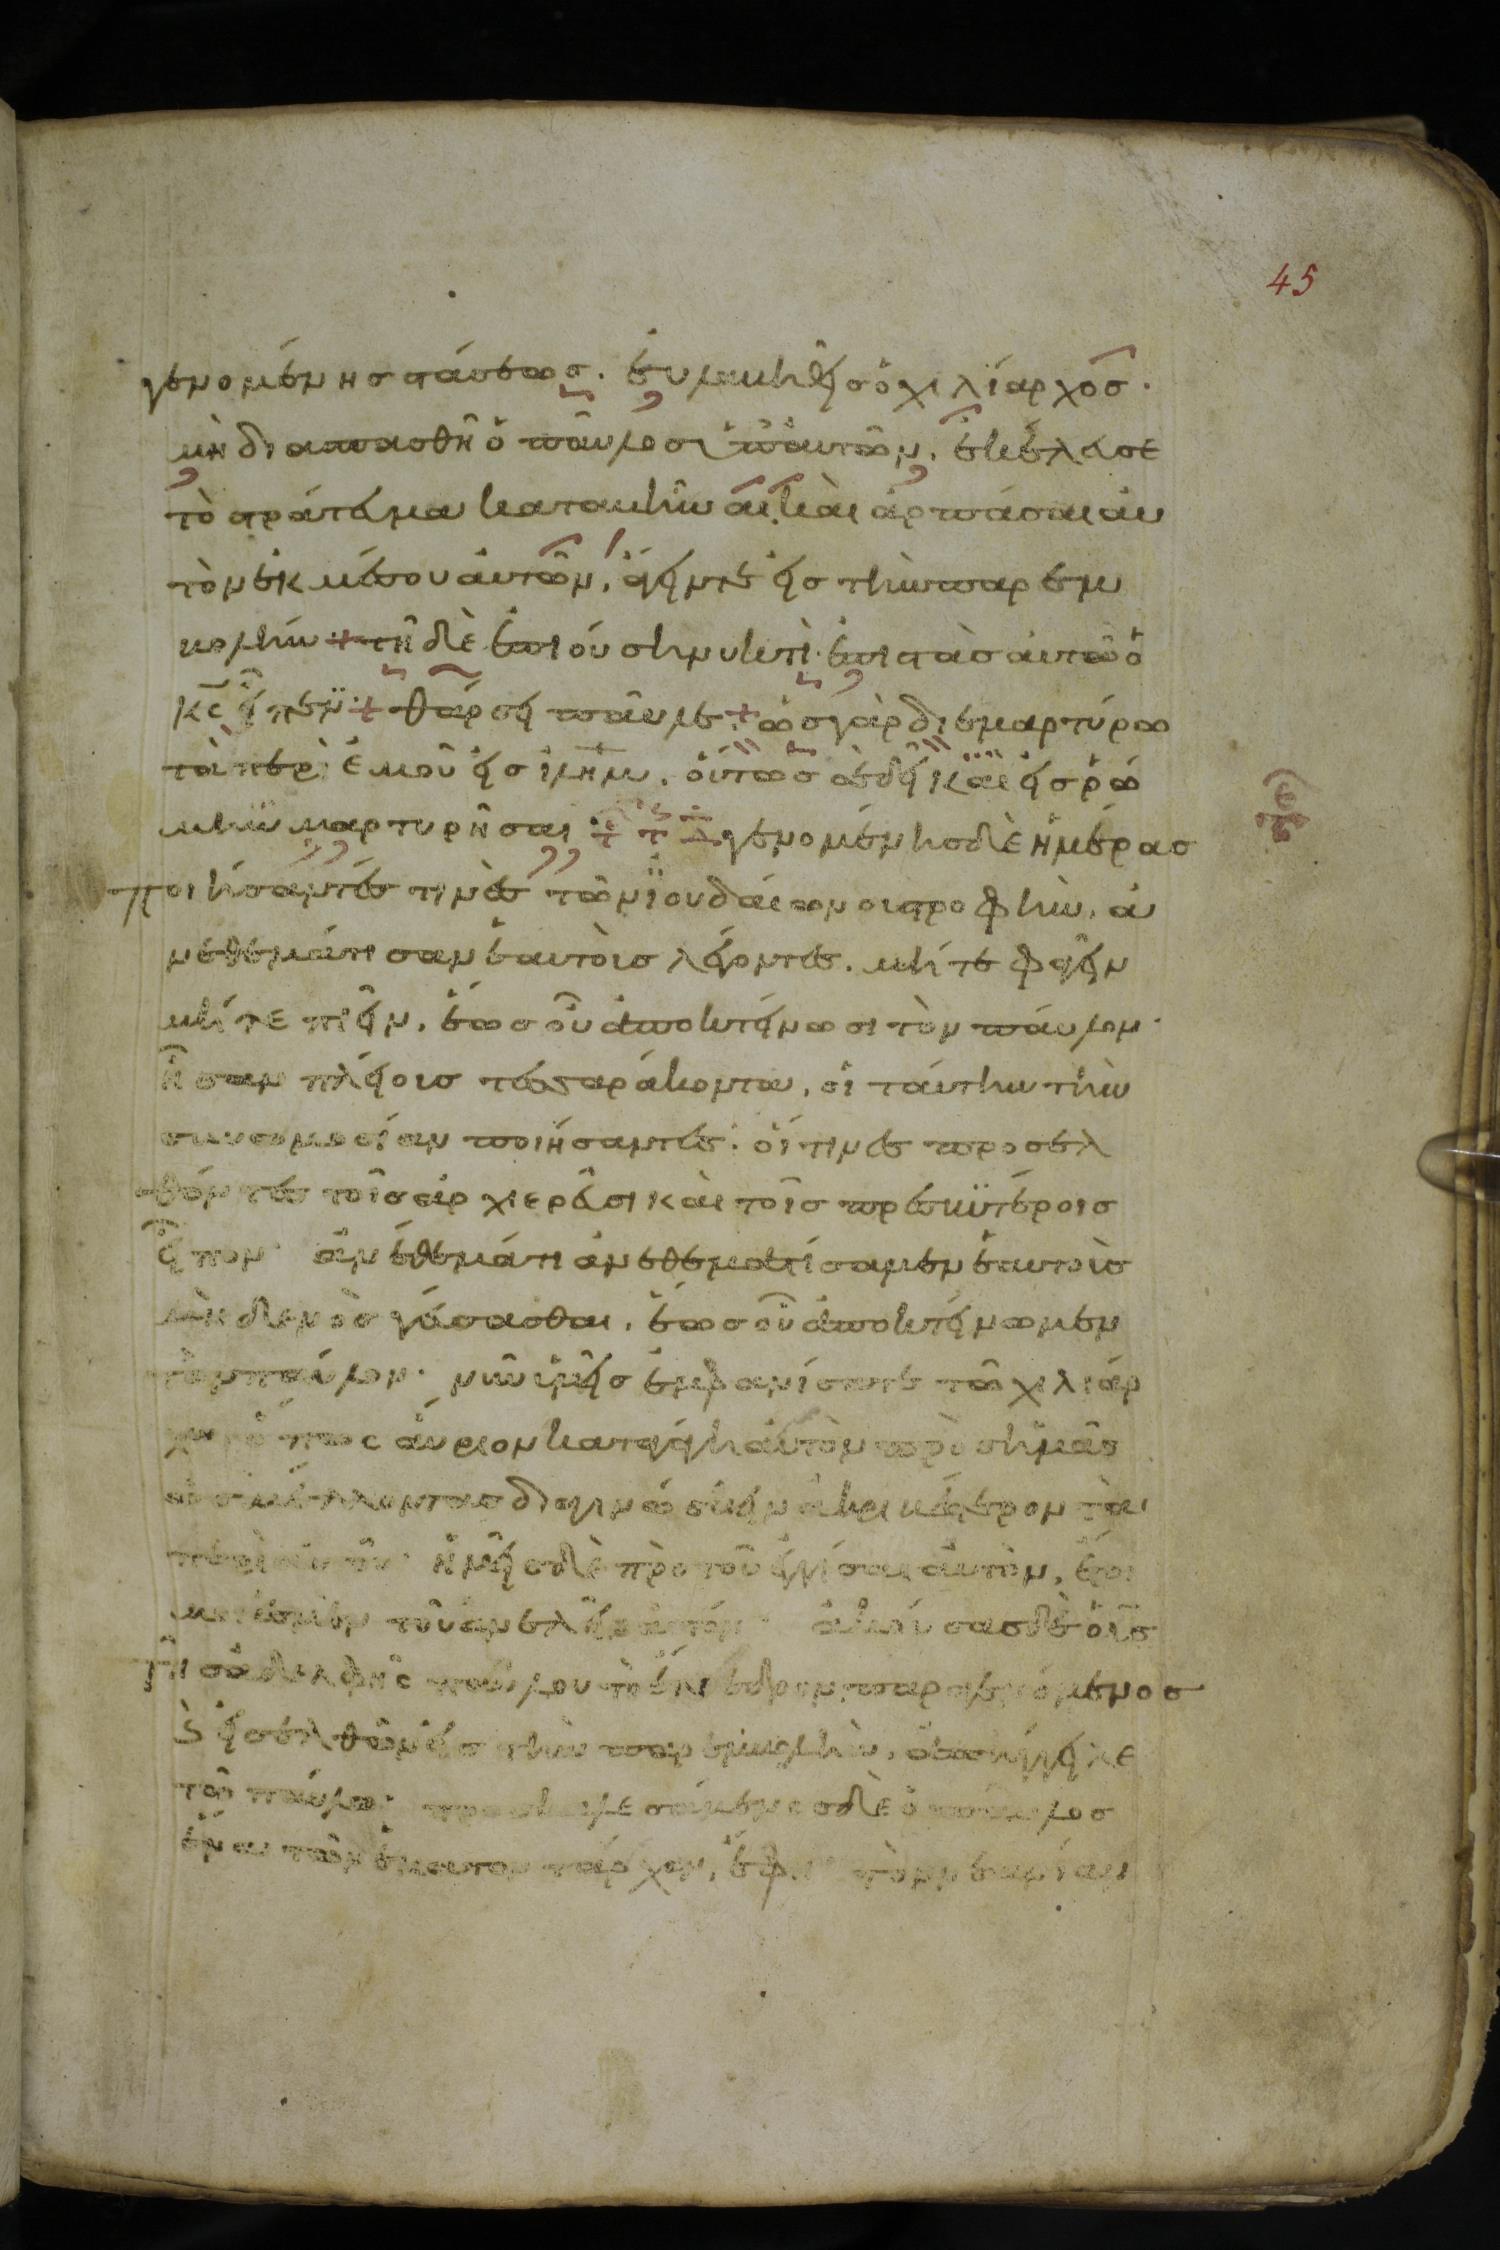 45
γενομένης στάσεως. εὐλαβηθεὶς ὁ χιλίαρχος.
μὴ διασπασθῆ ὁ παῦλος ὑπ' αὐτῶν. ἐκέλευσε
τὸ στράτευμα καταβῆναι καὶ ἁρπάσαι αὐ
τὸν ἐκ μέσου αὐτῶν, ἄγειν τε εἰς τὴν παρεμ
βολήν + τῆ δὲ ἐπιούση νυκτὶ ἐπιστὰς αὐτῶ ὁ
κς εἶπεν + θάρσει παῦλε + ὡς γὰρ διεμαρτύρω
τὰ περὶ ἐμοῦ εἰς ιλημ. οὕτως σὲ δεῖ καὶ εἰς ῥώ
μην μαρτυρῆσαι γενομένης δὲ ἡμέρας
ποιήσαντές τινες τῶν ἰουδαίων συστροφὴν, ἀ
νεθεμάτισαν ἑαυτοὺς λέγοντες. μήτε φαγεῖν
μήτε πιεῖν. ἕως οὗ ἀποκτείνωσι τὸν παῦλον.
ἦσαν πλείους τεσσαράκοντα, οἱ ταύτην τὴν
συνωμοσίαν ποιήσαντες. οἵτινες προσελ
θόντες τοῖς ἀρχιερεῦσι καὶ τοῖς πρεσβυτέροις
εἶπον ἀναθέματι ἀνεθεματίσαμεν ἑαυτοὺς
μηδενὸς γεύσασθαι. ἕως οὗ ἀποκτείνωμεν
τὸν παῦλον. νῦν ὑμεῖς ἐμφανίσατε τῶ χιλιάρ
χω ὅπως αὔριον καταγάγη αὐτὸν πρὸς ὑμᾶς
ὡς μέλλοντας διαγινώσκειν ἀκριβέστερον τὰ
περὶ αὐτοῦ ἡμεῖς δὲ πρὸ τοῦ ἐγγίσαι αὐτὸν, ἕτοι
μοί ἐσμεν τοῦ ἀνελεῖν αὐτόν ἀκούσας δὲ ὁ υἱὸς
τῆς ἀδελφῆς παύλου τὸ ἔνεδρον, παραγενόμενος
καὶ εἰσελθὼν εἰς τὴν παρεμβολὴν, ἀπήγγειλε
τῶ παύλω προσκαλεσάμενος δὲ ὁ παῦλος
ἕνα τῶν ἑκατοντάρχων, ἔφη τὸν νεανίαν